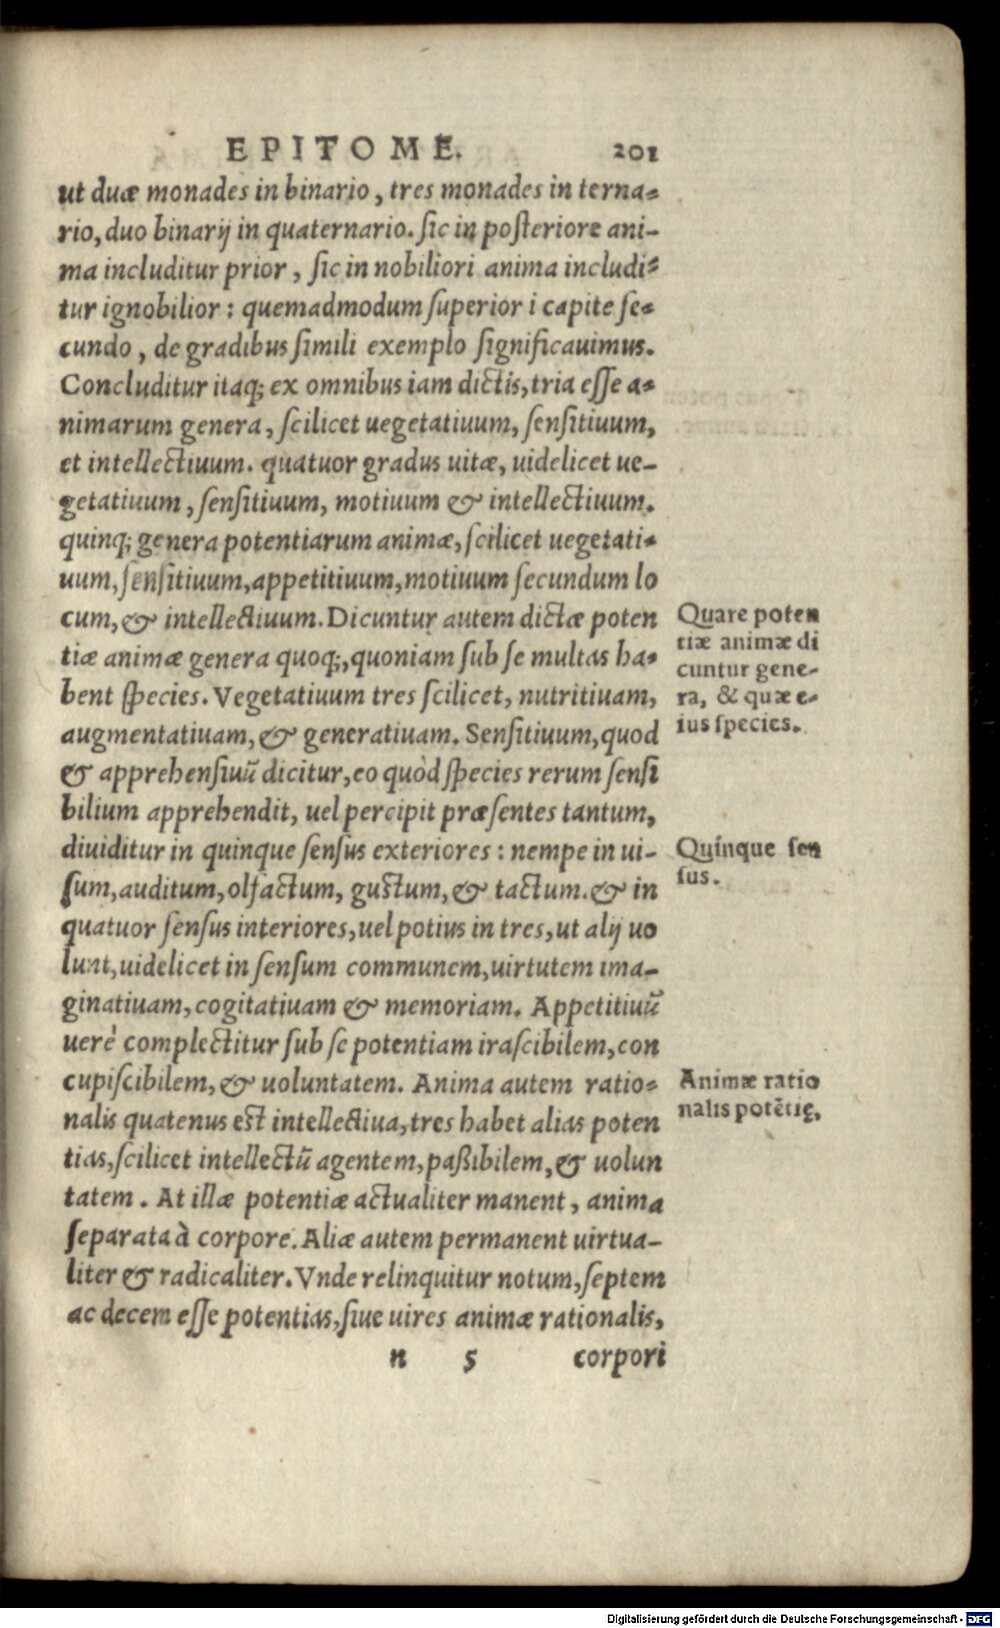 EPITOME. 201
ut duæ monades in binario, tres monades in terna-
rio, duo binarij in quaternario. sic in posteriore ani-
ma includitur prior, sic in nobiliori anima includi-
tur ignobilior: quemadmodum superior i capite se-
cundo, de gradibus simili exemplo significauimus.
Concluditur itaq; ex omnibus iam dictis, tria esse a-
nimarum genera, scilicet uegetatiuum, sensitiuum,
et intellectiuum. quatuor gradus uitæ, uidelicet ue-
getatiuum, sensitiuum, motiuum & intellectiuum.
quinq; genera potentiarum animæ, scilicet uegetati-
uum, sensitiuum, appetitiuum, motiuum secundum lo
cum, & intellectiuum. Dicuntur autem dictæ poten
tiæ animæ genera quoq;, quoniam sub se multas ha-
bent species. Vegetatiuum tres scilicet, nutritiuam,
augmentatiuam, & generatiuam. Sensitiuum, quod
& apprehensiuũ dicitur, eo quòd species rerum sensi
bilium apprehendit, uel percipit præsentes tantum,
diuiditur in quinque sensus exteriores: nempe in ui-
sum, auditum, olfactum, gustum, & tactum. & in
quatuor sensus interiores, uel potius in tres, ut alij uo
lunt, uidelicet in sensum communem, uirtutem ima-
ginatiuam, cogitatiuam & memoriam. Appetitiuũ
uerè complectitur sub se potentiam irascibilem, con
cupiscibilem, & uoluntatem. Anima autem ratio-
nalis quatenus est intellectiua, tres habet alias poten
tias, scilicet intellectũ agentem, paßibilem, & uolun
tatem. At illæ potentiæ actualiter manent, anima
separata à corpore. Aliæ autem permanent uirtua-
liter & radicaliter. Vnde relinquitur notum, septem
ac decem esse potentias, siue uires animæ rationalis,
n 5 corpori
Quare poten
tiæ animæ di
cuntur gene-
ra, & quæ e-
ius species.
Quinque sen
sus.
Animæ ratio
nalis potẽtię.
Digitalisierung gefördert durch die Deutsche Forschungsgemeinschaft - DFG